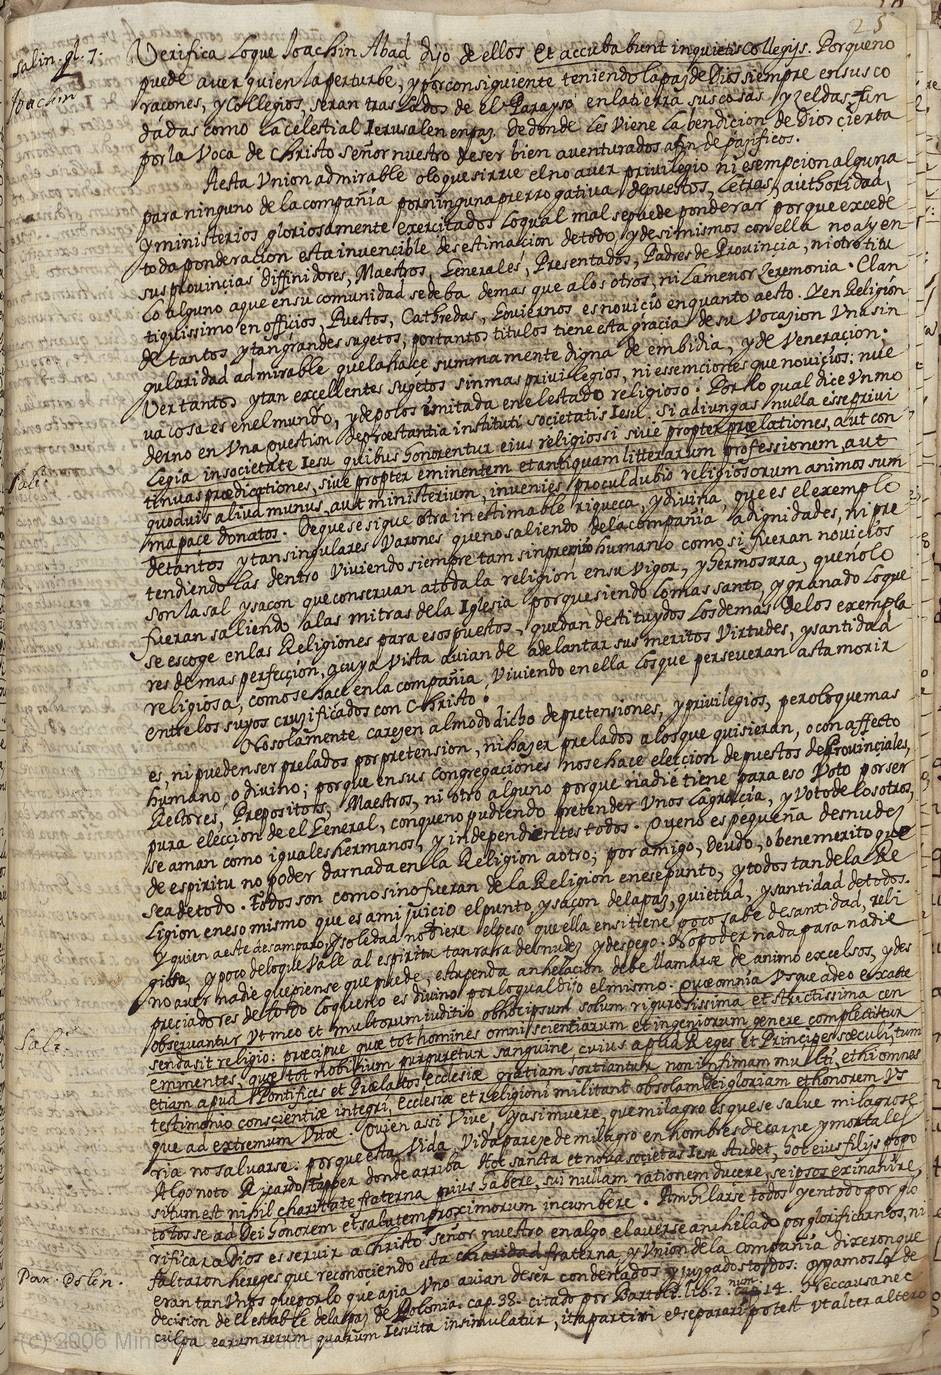 25
Salin. pl. 7.
Joachin
Verifica loque Joachin Abad dijo de ellos Et accubabunt inquietis Collegijs. Porqueno
puede aver quien la perturbe, y por consiguiente teniendo la paz de Dios siempre en sus co
razones, y Collegios, seran traslados de el Parayso en la tierra sus casas y zeldas fun
dadas como la celestial Jerusalen en paz. De donde les viene la bendicion de Dios cierta
por la Voca de Christo señor nuestro de ser bien aventurados a fin de pazificos.
Aesta Vnion admirable o lo que sirve el no aver privilegio ni esempcion alguna
para ninguno de la compañia por ninguna prerrogativa de puestos, Letras, authoridad,
y ministerios gloriosamente exercitados loqual mal se puede ponderar porque excede
toda ponderacion esta invencible desestimacion de todo y de si mismos con ella no ay en
sus provincias diffinidores, Maestros, Generales, Presentados, Padres de Provincia, ni otro titu
lo alguno a que en su comunidad se deba demas que a los otros, ni la menor Zeremonia. El an
tiquissimo en officios, Puestos, Cathedras, Goviernos es novicio en quanto a esto. Y en Religion
de tantos y tan grandes sugetos, por tantos titulos tiene esta gracia de su Vocazion Vna sin
gularidad admirable que la hace summamente digna de embidia, y de Veneracion.
Ver tantos y tan excellentes sugetos sin mas privilegios, ni essemciones que novicios: nue
va cosa es en el mundo, y de pocos imitada en el estado religioso. Por lo qual dice Vn mo
derno en Vna question De præstantia instituti societatis Iesu. Si adiungas nulla esse privi
legia in societate Iesu quibus honorentur eius religiossi sive propter prælationes, aut con
tinuas prædicationes, sive propter eminentem et antiquam litterarum professionem, aut
quoduis aliud munus, aut ministerium, invenies proculdubio religiosorum animos sum
ma pace donatos. De que se sigue otra inestimable riqueca, y divina, que es el exemplo
de tantos y tan singulares Varones que no saliendo de la compañia a dignidades, ni pre
tendiendo las dentro Viviendo siempre tam sin premio humano como si fueran novicios
son la sal y sacon que conservan a toda la religion en su Vigor, y hermosura, que no lo
fueran saliendo a las mitras de la Iglesia porque siendo lo mas santo, y granado lo que
se escoge en las Religiones para esos puestos, quedan destituydos los demas de los exempla
res de mas perfeccion, a cuya vista avian de adelantar sus meritos Virtudes, y santidad
religiosa, como se hace en la compañia, Viviendo en ella los que perseveran asta morir
entre los suyos cruzificados con Christo.
No solamente carezen al modo dicho de pretensiones, y privilegios, pero lo que mas
es, ni pueden ser prelados por pretension, ni hazer prelados a los que quisieran, o con affecto
humano, o divino; porque en sus congregaciones no se hace eleccion de puestos de Provinciales,
Retores, Prepositos, Maestros, ni otro alguno porque nadie tiene para eso Voto por ser
pura eleccion de el General, con que no pudiendo pretender Vnos la gracia, y Voto de los otros,
se aman como iguales hermanos, y independientes todos. Que no es pequeña desnudez
de espiritu no poder dar nada en la Religion a otro; por amigo, Deudo, o benemerito que
sea de todo. Todos son como si no fueran de la Religion en ese punto, y todos tan de la Re
ligion en eso mismo que es a mi juicio el punto, y sacon de la paz, quietud, y santidad de todos.
Y quien a este desamparo, y soledad no diere el peso que ella en si tiene poco sabe de santidad, reli
giosa, y poco de lo que vale al espiritu tan rara desnudez y despego. No poder nada para nadie
no aver nadie que piense que puede, estupenda anhelacion debe llamarse de animo excelsos, y des
preciadores de todo lo que no es divino por lo qual dijo el mismo. Quæ omnia Vsque adeo exacte
observantur Vt meo et multorum iuditio ob hoc ipsum solum rigurosissima et strictissima cen
senda sit religio: præcipue quæ tot homines omni scientiarum et ingeniorum genere complectitur
eminentes: quæ tot nobilium purpuretur sanguine, cuius apud Reges et Principes sæculi, tum
etiam apud Pontifices et Prælatos ecclesiæ gratiam sortiantur non infimam multi, et hi omnes
testimonio conscientiæ integri, Ecclesiæ et religioni militant ob solam Dei gloriam et honorem Vs
que ad extremum Vitæ. Quien assi Vive, y asi muere, que milagro es que se salve milagrose
ria no salvarse: porque esta Vida, Vida pareze de milagro en hombres de carne y mortales
Algo noto Ricardo donde arriba Hoc sancta et nova societas Iesu studet, hoc eius filijs propo
situm est nihil charitate fraterna prius habere, sui nullam rationem ducere, se ipsos exinanire,
totos se ad Dei honorem et salutem proximorum incumbere. Anihilarse todos y en todo por glo
rificar a Dios es servir a Christo señor nuestro en algo el averse anihelado por glorificarnos, ni
faltaron hereges que reconociendo esta charidad fraterna, y Vnion de la Compañia dixeron que
eran tan Vnos que por lo que azia Vno avian de ser condenados y juzgados todos: oygamos la de
decision de el estable de la paz de Polonia. cap. 38. citado por Barthol. lib. 2. num. 14. Nec causa nec
culpa earum rerum quarum Iesuita insimulatur, ita partiri et separari potest Vt alter altero
Salz.
Salz.
Pax. Polon.
(c) 2006 Ministerio de Cultura